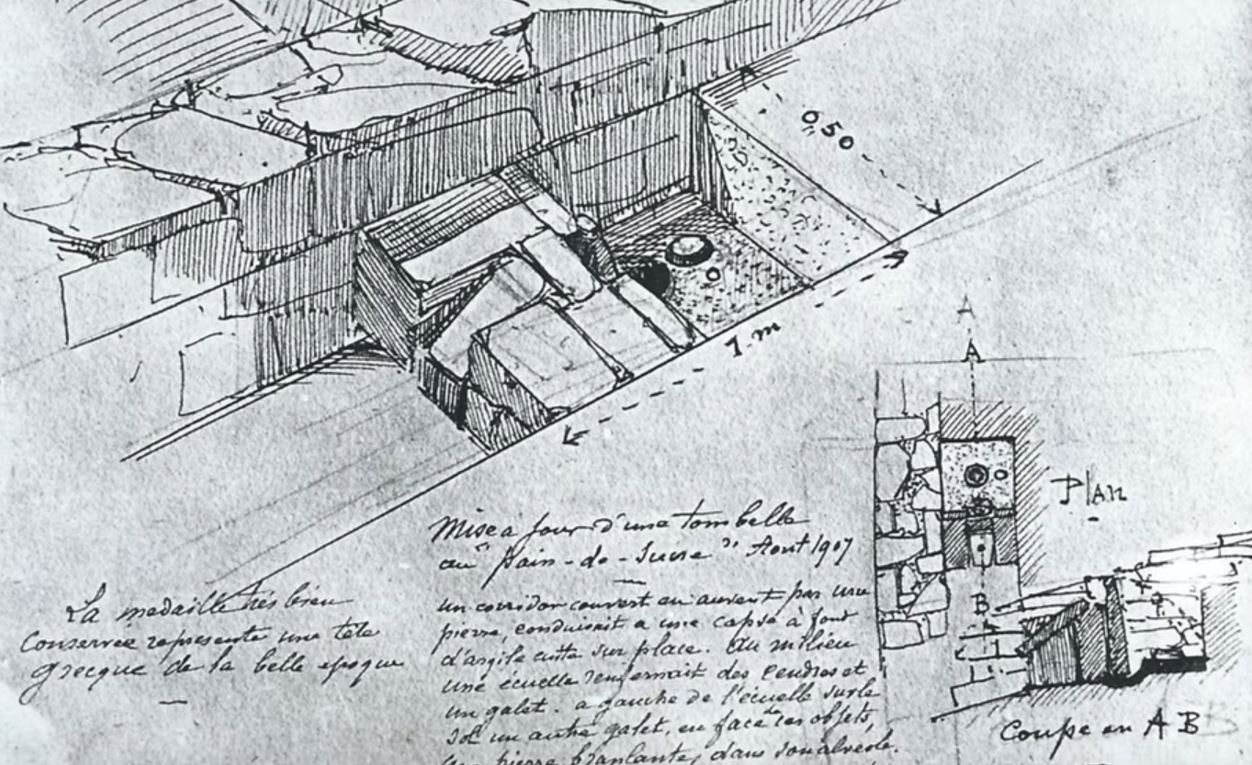 0,50
1 m
A
A
Plan
B
Coupe en A B
B
Mise a jour d'une tombelle
au "Pain-de-Sucre" Aout 1907
un corridor couvert en auvent par une
pierre, conduisait a une capse à fond
d'argile cuite sur place. Au milieu
une écuelle renfermait des cendres et
un galet. a gauche de l'écuelle sur le
sol un autre galet, en face ces objets,
pierre branlante, dans son alvéole.
La medaille très bien
conservee represente une tête
grecque de la belle epoque